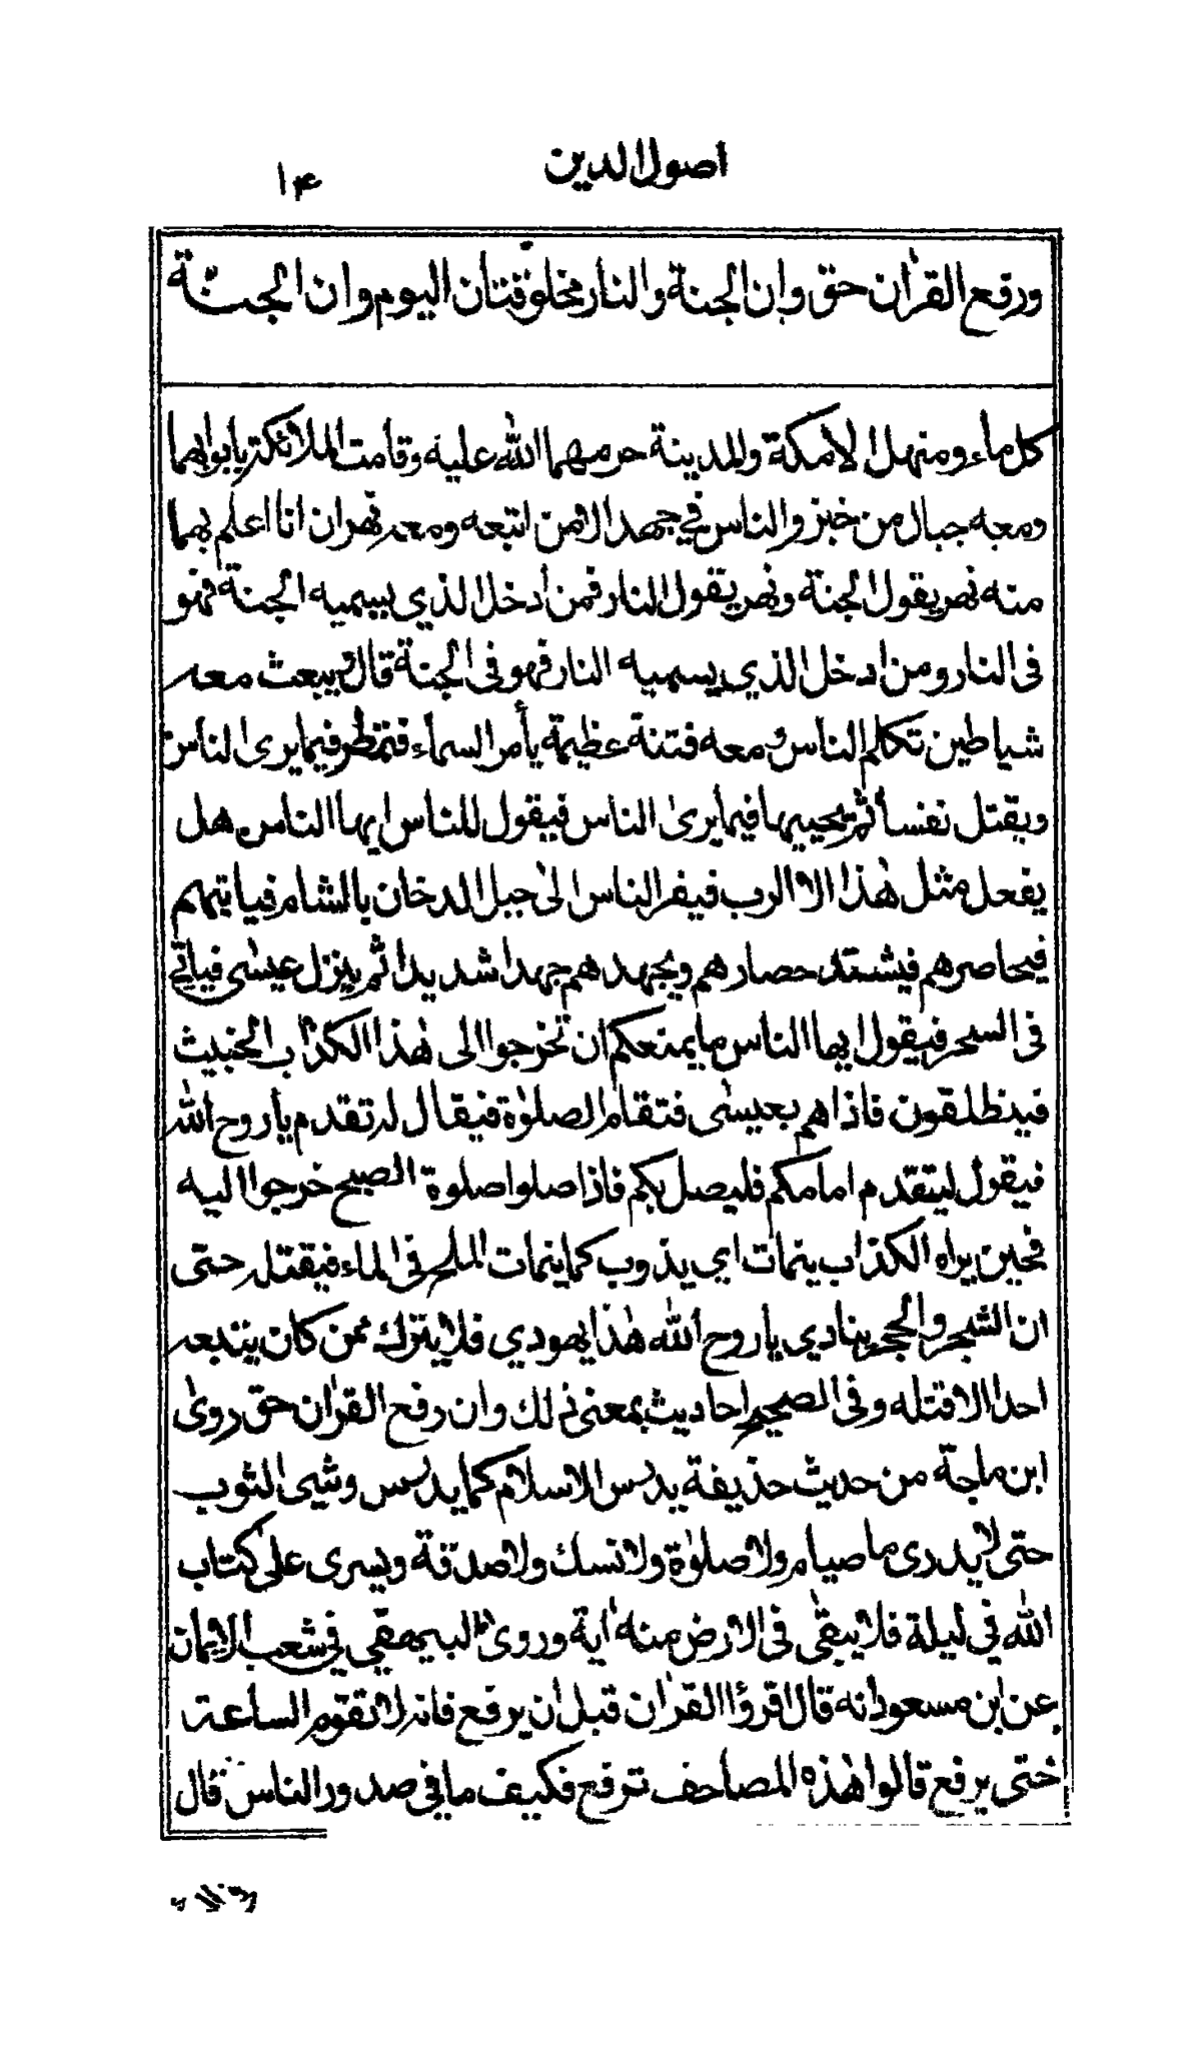 اصول الدین
۱۴
ورفع القراٰن حق وان الجنة والنار مخلوقتان الیوم وان الجنة
کل ماء ومنهل الا مکة والمدینة حرمهما الله علیه وقامت الملائکة بابوابهما
ومعه جبال من خبز والناس فی جهد الا من اتبعه ومعه نهران انا اعلم بهما
منه نهر یقول الجنة ونهر یقول النار فمن أدخل الذی یسمیه الجنة فهو
فی النار ومن ادخل الذی یسمیه النار فهو فی الجنة قال ویبعث معه
شیاطین تکلم الناس ومعه فتنة عظیمة یأمر السماء فتمطر فیما یری الناس
ویقتل نفسا ثم یحییها فیما یریٰ الناس فیقول للناس ایها الناس هل
یفعل مثل هٰذا الا الرب فیفر الناس الیٰ جبل الدخان بالشام فیاتیهم
فیحاصرهم فیشتد حصارهم ویجهدهم جهدا شدیدا ثم ینزل عیسٰی فیاتی
فی السحر فیقول ایها الناس ما یمنعکم ان تخرجوا الی هٰذا الکذاب الخبیث
فینطلقون فاذا هم بعیسٰی فتقام الصلوٰة فیقال له تقدم یا روح الله
فیقول لیتقدم امامکم فلیصل بکم فاذا صلوا صلوة الصبح خرجوا الیه
فحین یراه الکذاب ینماث ای یذوب کما ینماث الملح فی الماء فیقتله حتی
ان الشجر والحجر ینادی یا روح الله هٰذا یهودی فلا یترك ممن کان یتبعه
احدا الا قتله وفی الصحیح احادیث بمعنی ذلك وان رفع القراٰن حق رویٰ
ابن ماجة من حدیث حذیفة یدرس الاسلام کما یدرس وشی الثوب
حتی لا یدری ما صیام ولا صلوٰة ولا نسك ولا صدقة ویسری علی کتاب
الله فی لیلة فلا یبقٰی فی الارض منه اٰیة وروی البیهقی فی شعب الایمان
عن ابن مسعود انه قال اقرؤا القراٰن قبل ان یرفع فانه لا تقوم الساعة
حتی یرفع قالوا هٰذه المصاحف ترفع فکیف ما فی صدور الناس قال